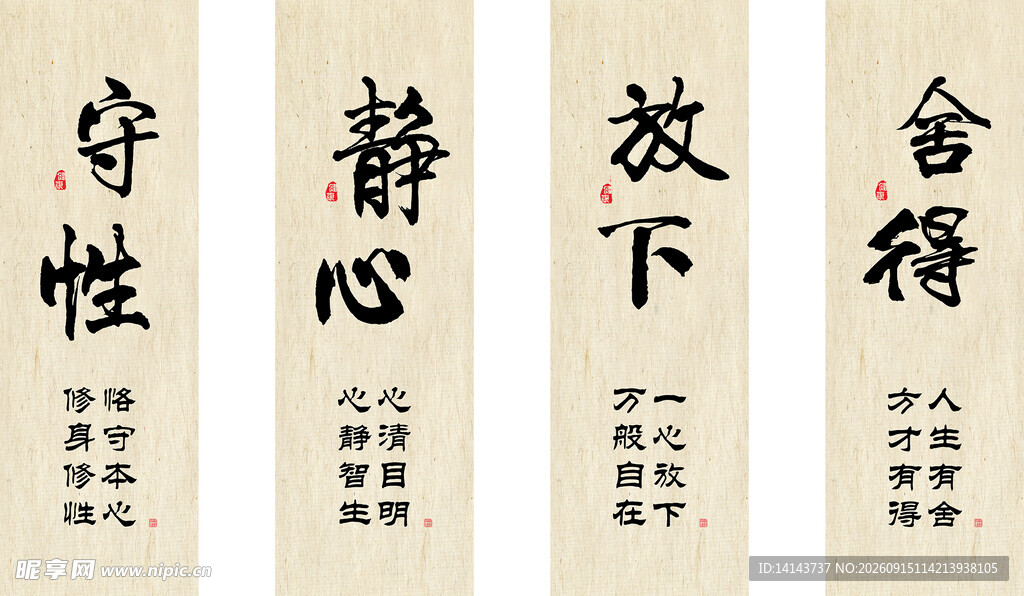 舍得
人生有舍
方才有得
放下
一心放下
万般自在
静心
心清目明
心静智生
守性
恪守本心
修身修性
昵享网 www.nipic.cn
ID:14143737 NO:20260915114213938105